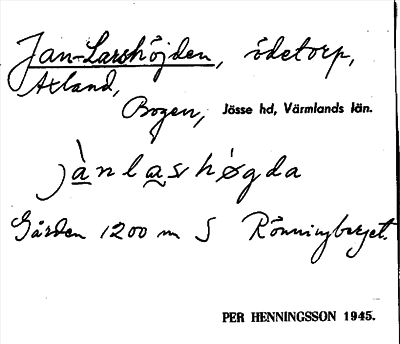 Jan-Larshöjden, ödetorp,
Axland,
Bogen, Jösse hd, Värmlands län.
jànlashǿgda
Gården 1200 m S Rönningberget.
PER HENNINGSSON 1945.